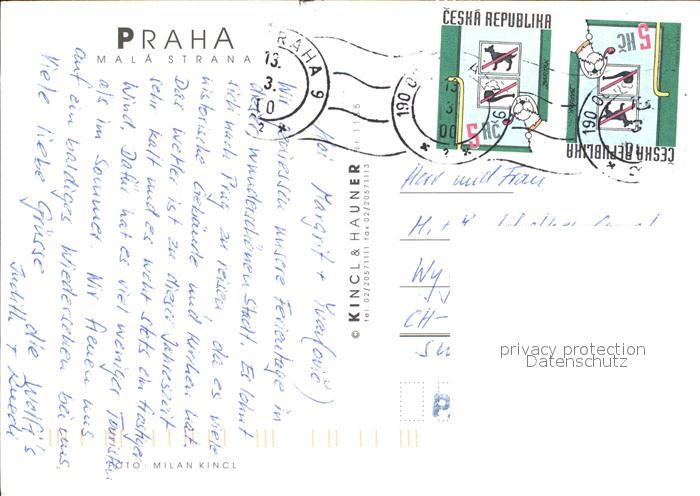 PRAHA
MALÁ STRANA
Hoi Margrit +
Wir geniessen unsere Ferientage in
dieser wunderschönen Stadt. Es lohnt
sich nach Prag zu reisen, da es viele
historische Gebäude und Kirchen hat.
Das Wetter ist zu dieser Jahreszeit
sehr kalt und es weht stets ein frostiger
Wind. Dafür hat es viel weniger Touristen
als im Sommer. Wir freuen uns
auf ein baldiges Wiedersehen bei uns.
Viele liebe Grüsse die
Judith + Ruedi
FOTO: MILAN KINCL
© KINCL & HAUNER
tel. 02/20571111 fax 02/20571113
PRAHA 6
13.
3.
190 0
13
3
00
ČESKÁ REPUBLIKA
5 Kč
ČESKÁ REPUBLIKA
5 Kč
Herr und Frau
CH-
privacy protection
Datenschutz